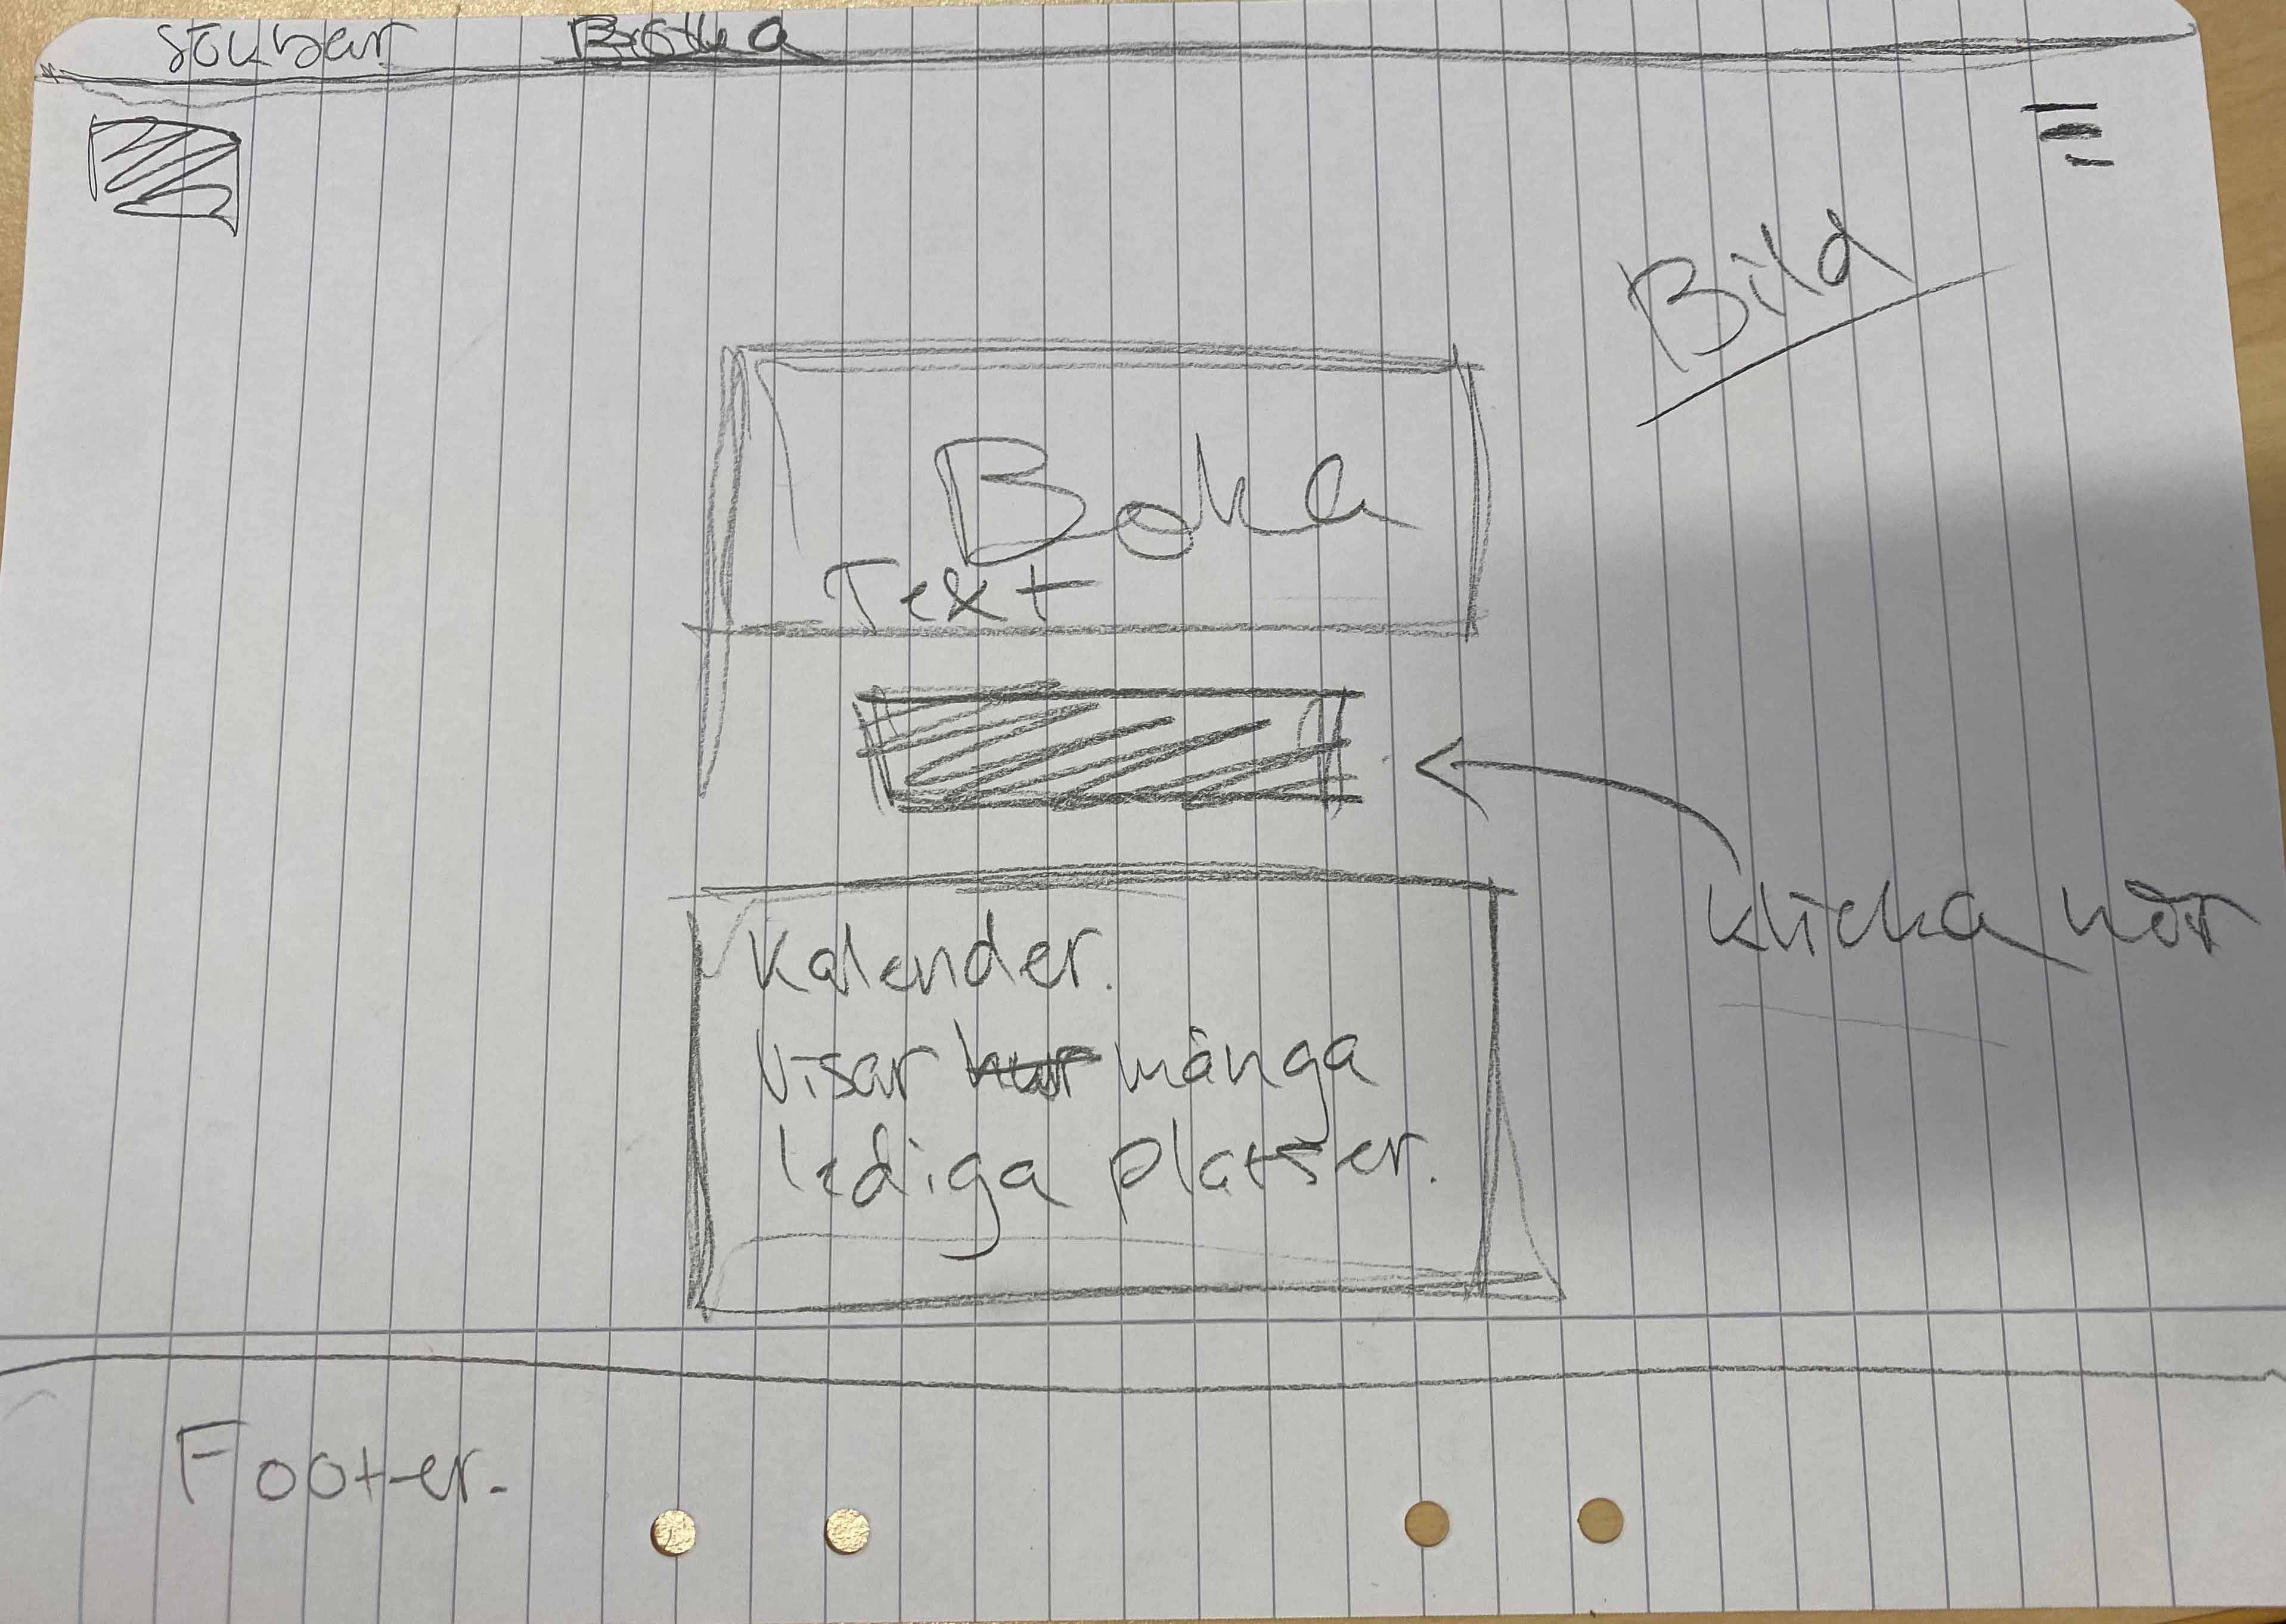 sökbar Boka
Bild
Boka
Text
klicka här
Kalender.
Visar hur många
lediga platser.
Footer.